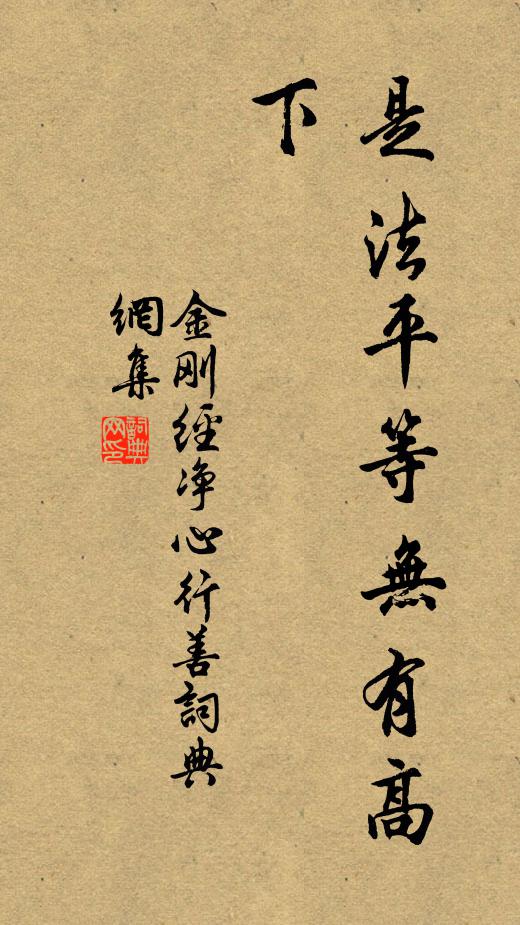 是法平等無有高
下
金刚經净心行善詞典
網集
詞典
网印